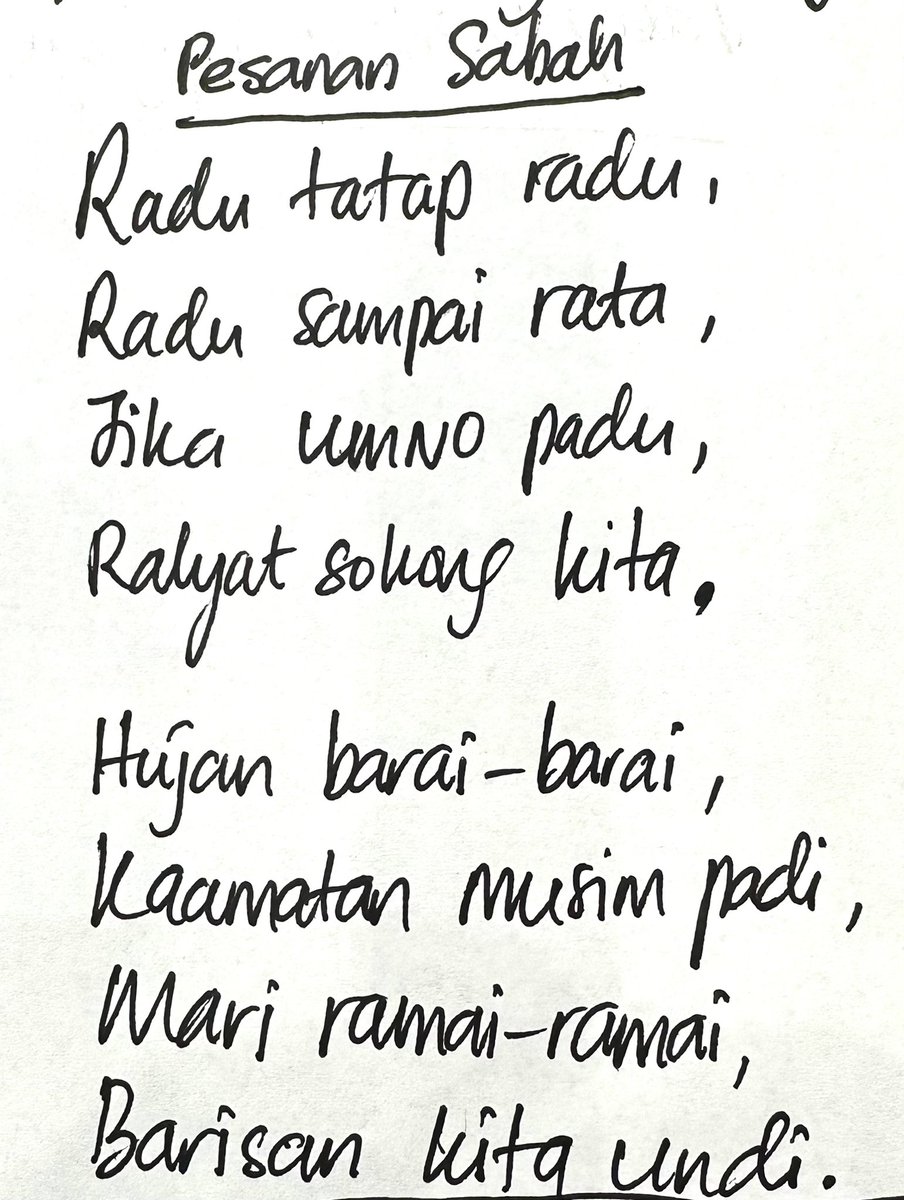 Pesanan Sabah
Radu tatap radu,
Radu sampai rata,
Jika UMNO padu,
Rakyat sokong kita.
Hujan barai-barai,
Kaamatan musim padi,
Mari ramai-ramai,
Barisan kita undi.